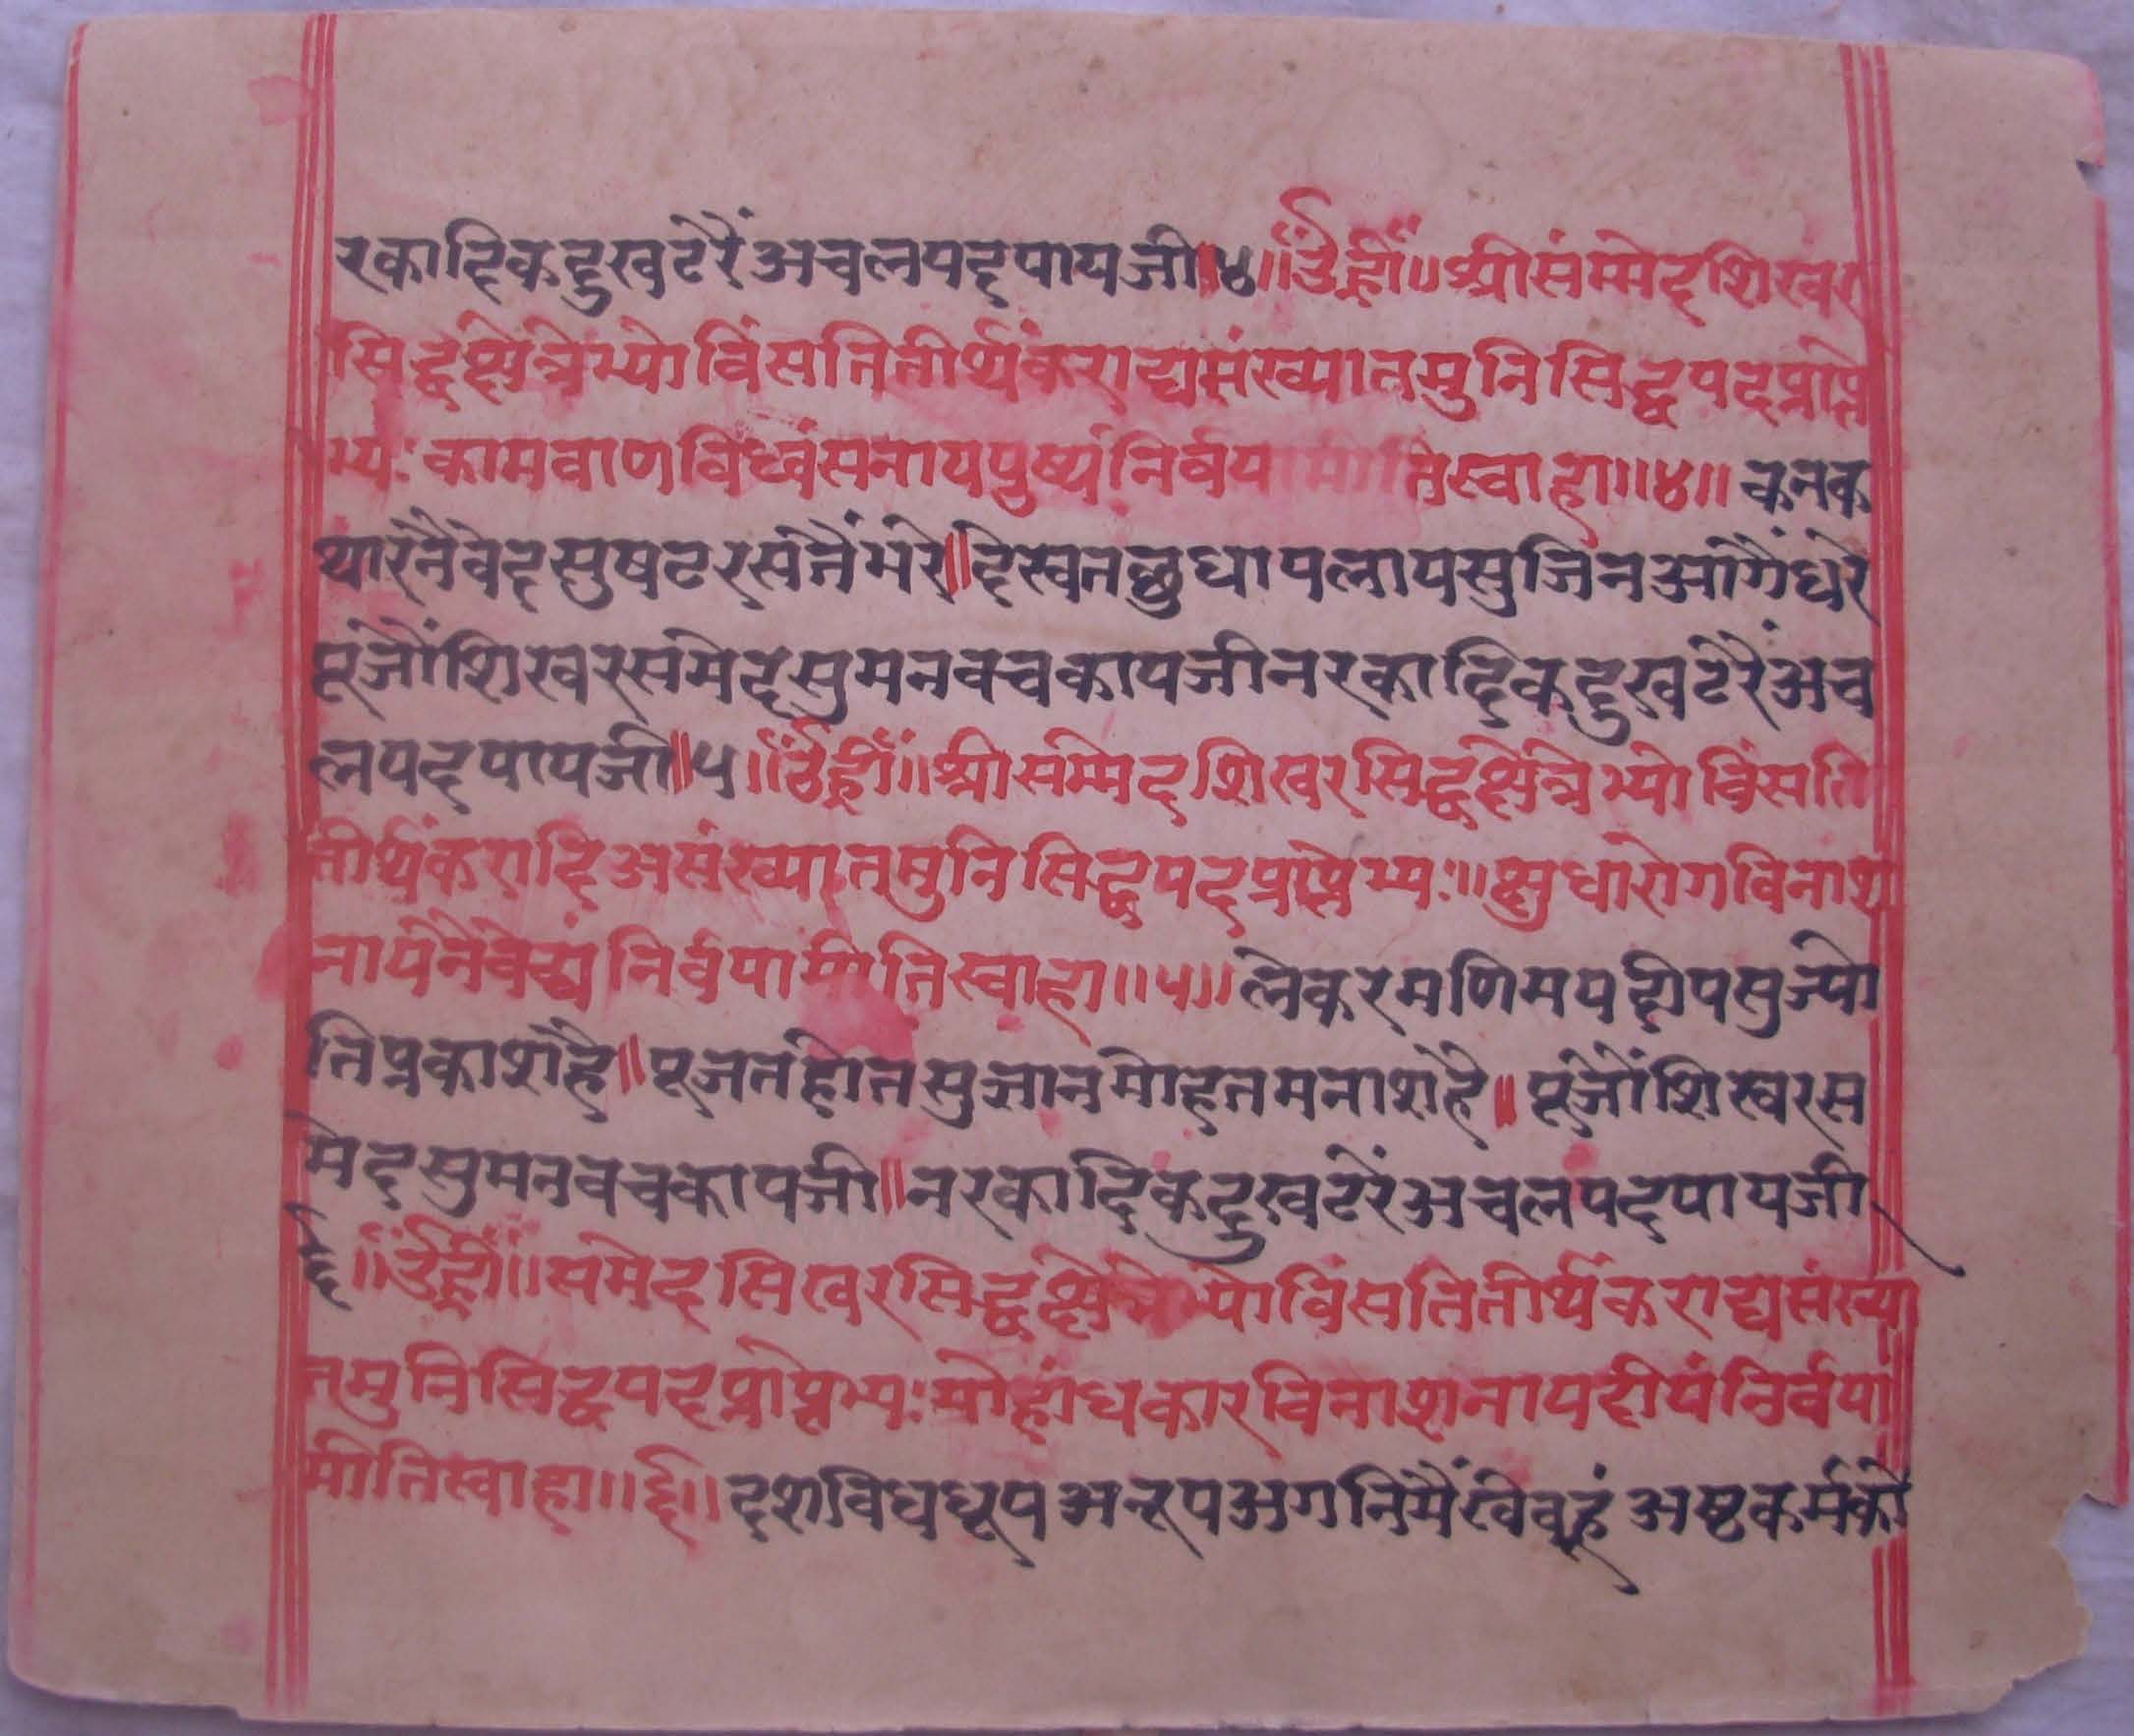 रकादिकदुखटरैंअचलपदपायजी॥४॥ॐह्रीं॥श्रीसंम्मेदशिखर
सिद्धक्षेत्रेभ्योविंसतितीर्थंकराद्यसंख्यातमुनिसिद्धपदप्राप्ते
भ्यः कामवाणविध्वंसनायपुष्पंनिर्वपामीतिस्वाहा॥४॥ कनक
थारनैवेदसुषटरसतैंभरे॥देखतछुधापलायसुजिनआगैंधरे
पूजौंशिखरसमेदसुमनवचकायजीनरकादिकदुखटरैंअच
लपदपायजी॥५॥ॐह्रीं॥श्रीसम्मेदशिखरसिद्धक्षेत्रेभ्योविंसति
तीर्थंकरादिअसंख्यातमुनिसिद्धपदप्राप्तेभ्यः॥क्षुधारोगविनाश
नायनैवेद्यं निर्वपामीतिस्वाहा॥५॥लेकरमणिमयदीपसुज्यो
तिप्रकाशहै॥पूजतहोतसुज्ञानमोहतमनाशहै॥पूजौंशिखरस
मेदसुमनवचकायजी॥नरकादिकदुखटरैंअचलपदपायजी
६॥ॐह्रीं॥समेदसिखरसिद्धक्षेत्रेभ्योविंसतितीर्थंकराद्यसंख्या
तमुनिसिद्धपदप्राप्तेभ्यःमोहांधकारविनाशनायदीपंनिर्वपा
मीतिस्वाहा॥६॥दशविधधूपअनूपअगनिमैंखेवहूं अष्टकर्मकौ